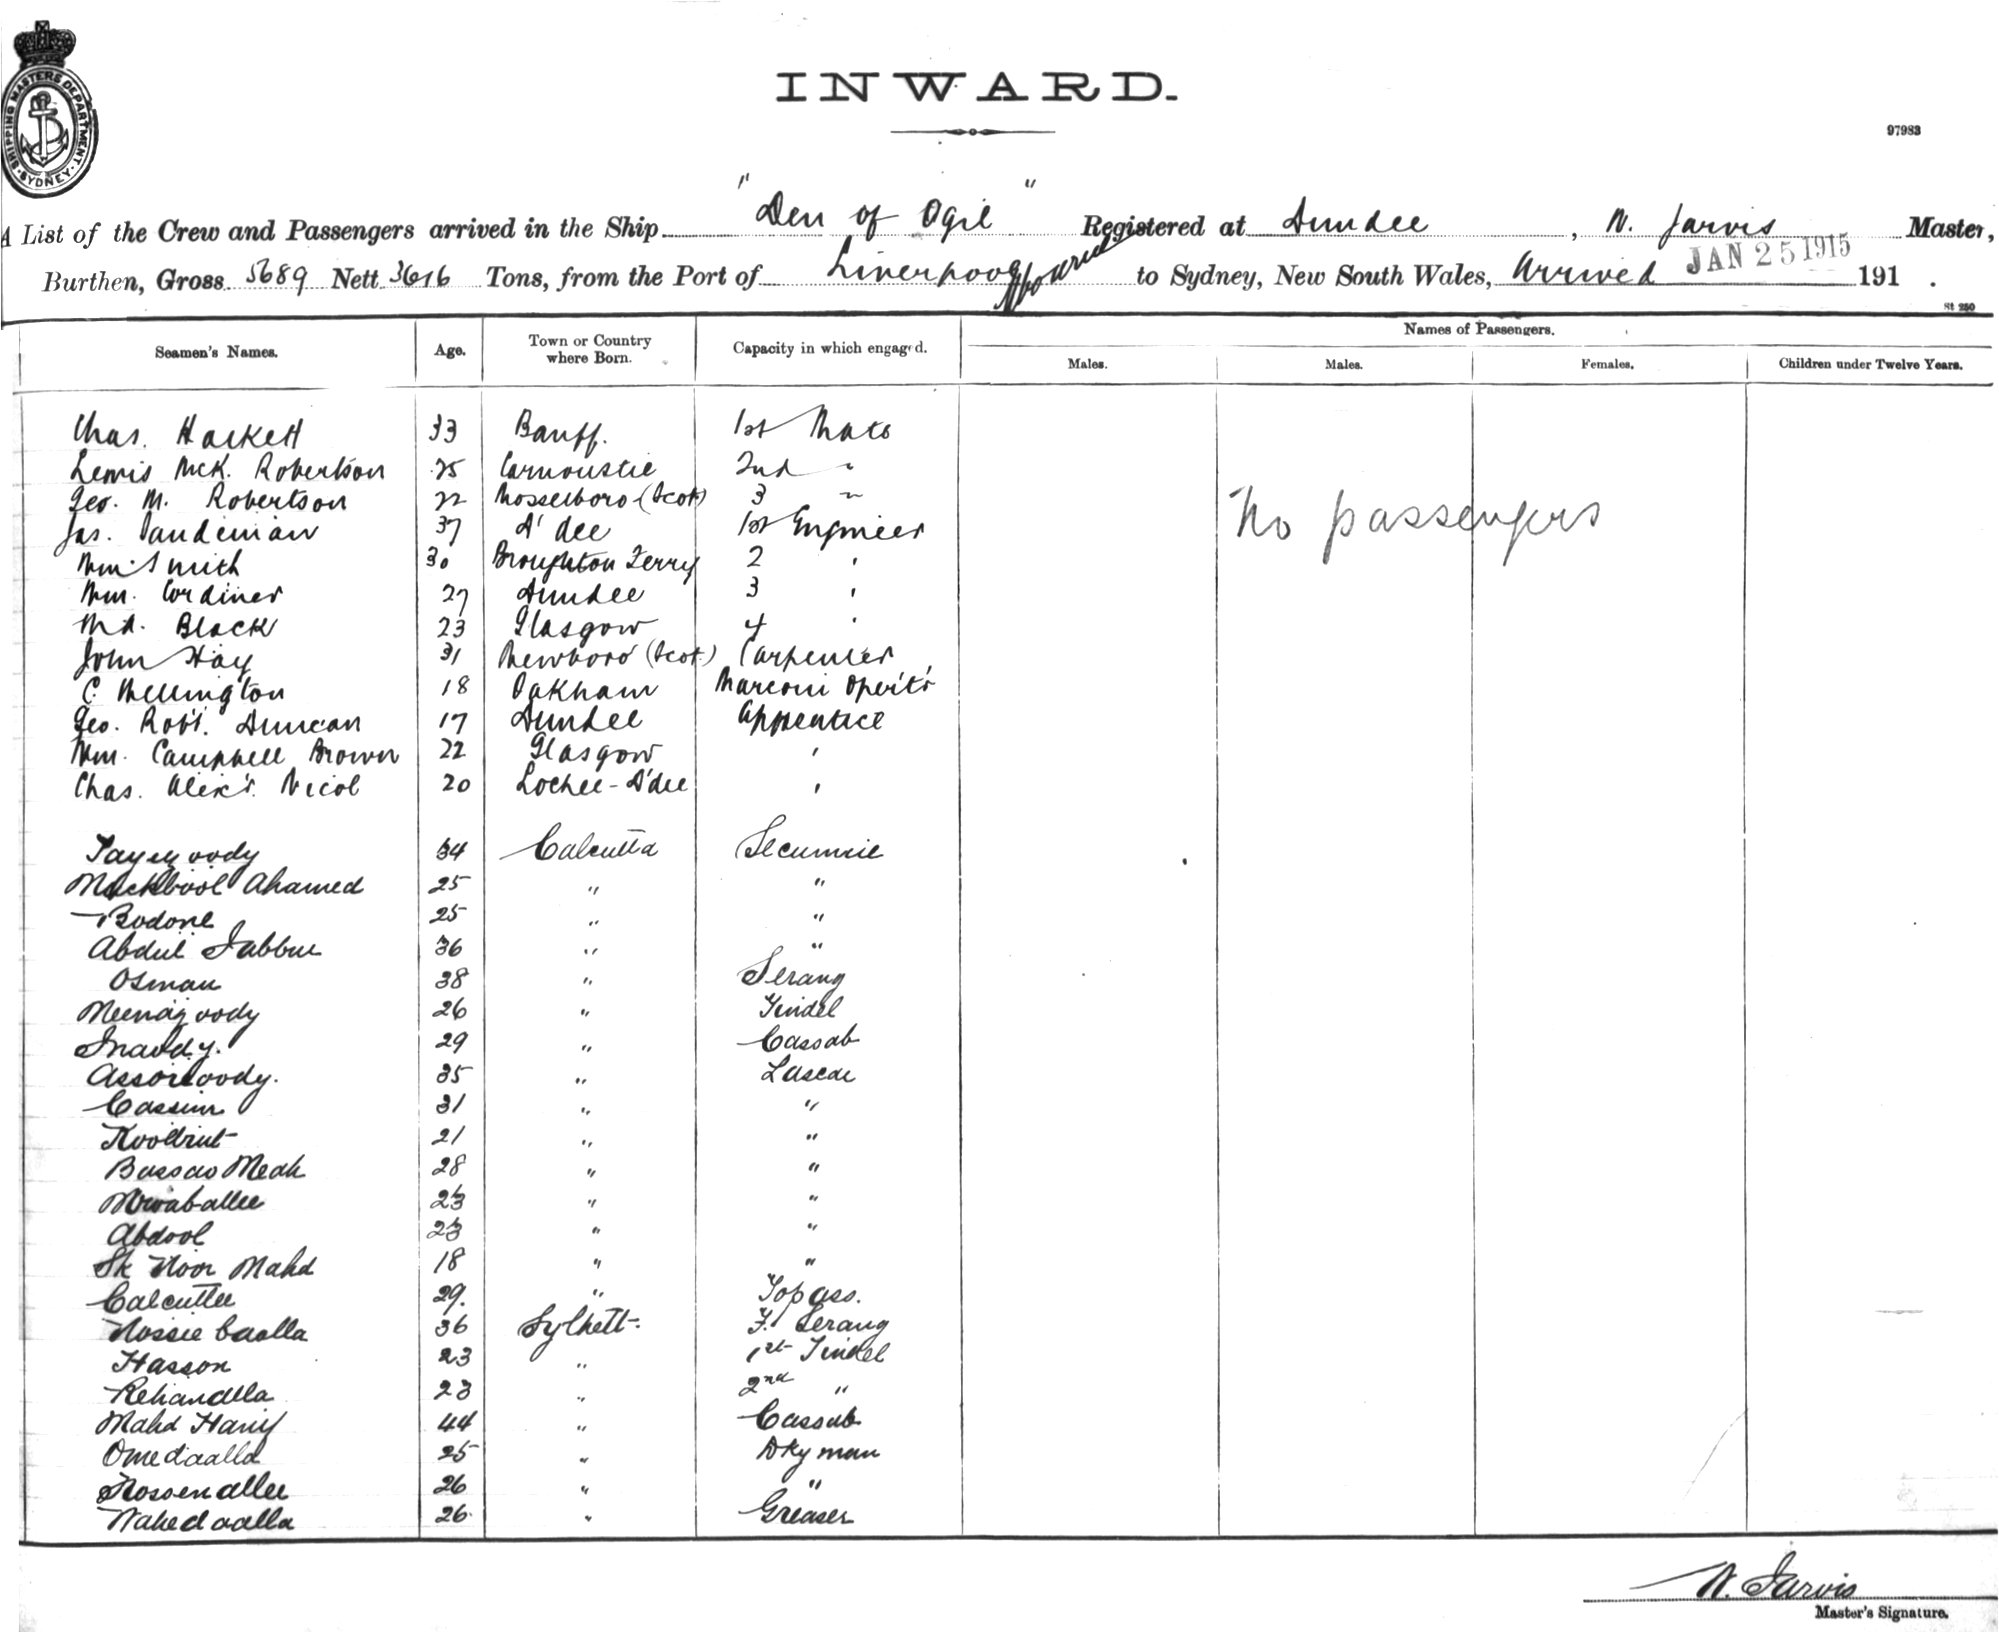 SHIPPING MASTERS DEPARTMENT. SYDNEY.
INWARD.
97983
A List of the Crew and Passengers arrived in the Ship "Den of Ogil" Registered at Dundee, W. Jarvis Master,
Burthen, Gross 5689 Nett 3616 Tons, from the Port of Liverpool to Sydney, New South Wales, Arrived JAN 25 1915 191 .
St 250
Names of Passengers.
Seamen's Names. Age. Town or Country where Born. Capacity in which engaged. Males. Males. Females. Children under Twelve Years.
Chas. Hackett 33 Banff. 1st Mate
Lewis McK. Robertson 25 Carnoustie 2nd "
Geo. M. Robertson 22 Mosselboro (Scot) 3 "
No passengers
Jas. Sandeman 37 D'dee 1st Engineer
Wm. Smith 30 Broughton Ferry 2 "
Wm. Cordiner 27 Dundee 3 "
Black 23 Glasgow 4 "
John Hay 31 Newboro (Scot.) Carpenter
C. Wellington 18 Oakham Marconi Operat'r
Geo. Robt. Duncan 17 Dundee Apprentice
Wm. Campbell Brown 22 Glasgow "
Chas. Alex'r. Nicol 20 Lochee - D'dee "
34 Calcutta Secunnie
Muckbool Ahamed 25 " "
Bodone 25 " "
Abdul Jubbur 36 " "
Osman 38 " Serang
26 " Tindel
29 " Cassab
35 " Lascar
Cassim 31 " "
21 " "
Meah 28 " "
23 " "
Abdool 23 " "
Sk Noor Mahd 18 " "
Calcuttee 29. " Topass.
36 Sylhett. F. Serang
Hasson 23 " 1st Tindel
23 " 2nd "
Mahd Hanif 44 " Cassab
Omedaalla 25 " Dkyman
Hossenallee 26 " "
26. " Greaser
W. Jarvis
Master's Signature.